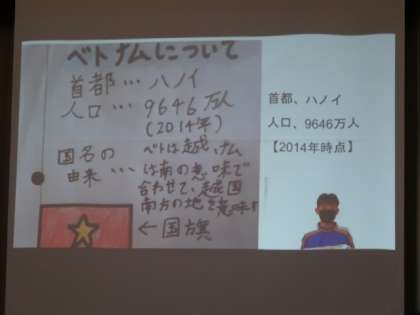 ベトナムについて
首都… ハノイ
人口… 9646万人
(2014年)
国名の
由来…
ベトは越、ナム
は南の意味で
合わせて、越国
南方の地を意味す
←国旗
首都、ハノイ
人口、9646万人
【2014年時点】